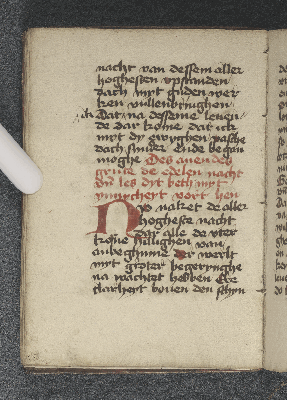 nacht van dessem aller
hoghesten vpstanden
dach myt guden wer
ken vullenbringhen
Dar na desseme leuen
de dar kome dat ick
myt dy ewyghen pasche
dach sunder ende began
moghe Des auendes
grute de edelen nacht
vnde les dyt beth myt
ynnicheyt vort hen
NV naket de aller
hogheste nacht
dar alle de vter
korne hillighen van
anbeghinne der werlt
myt groter begerynghe
na wachtet hebben Ere
clarheyt bouen den schyn